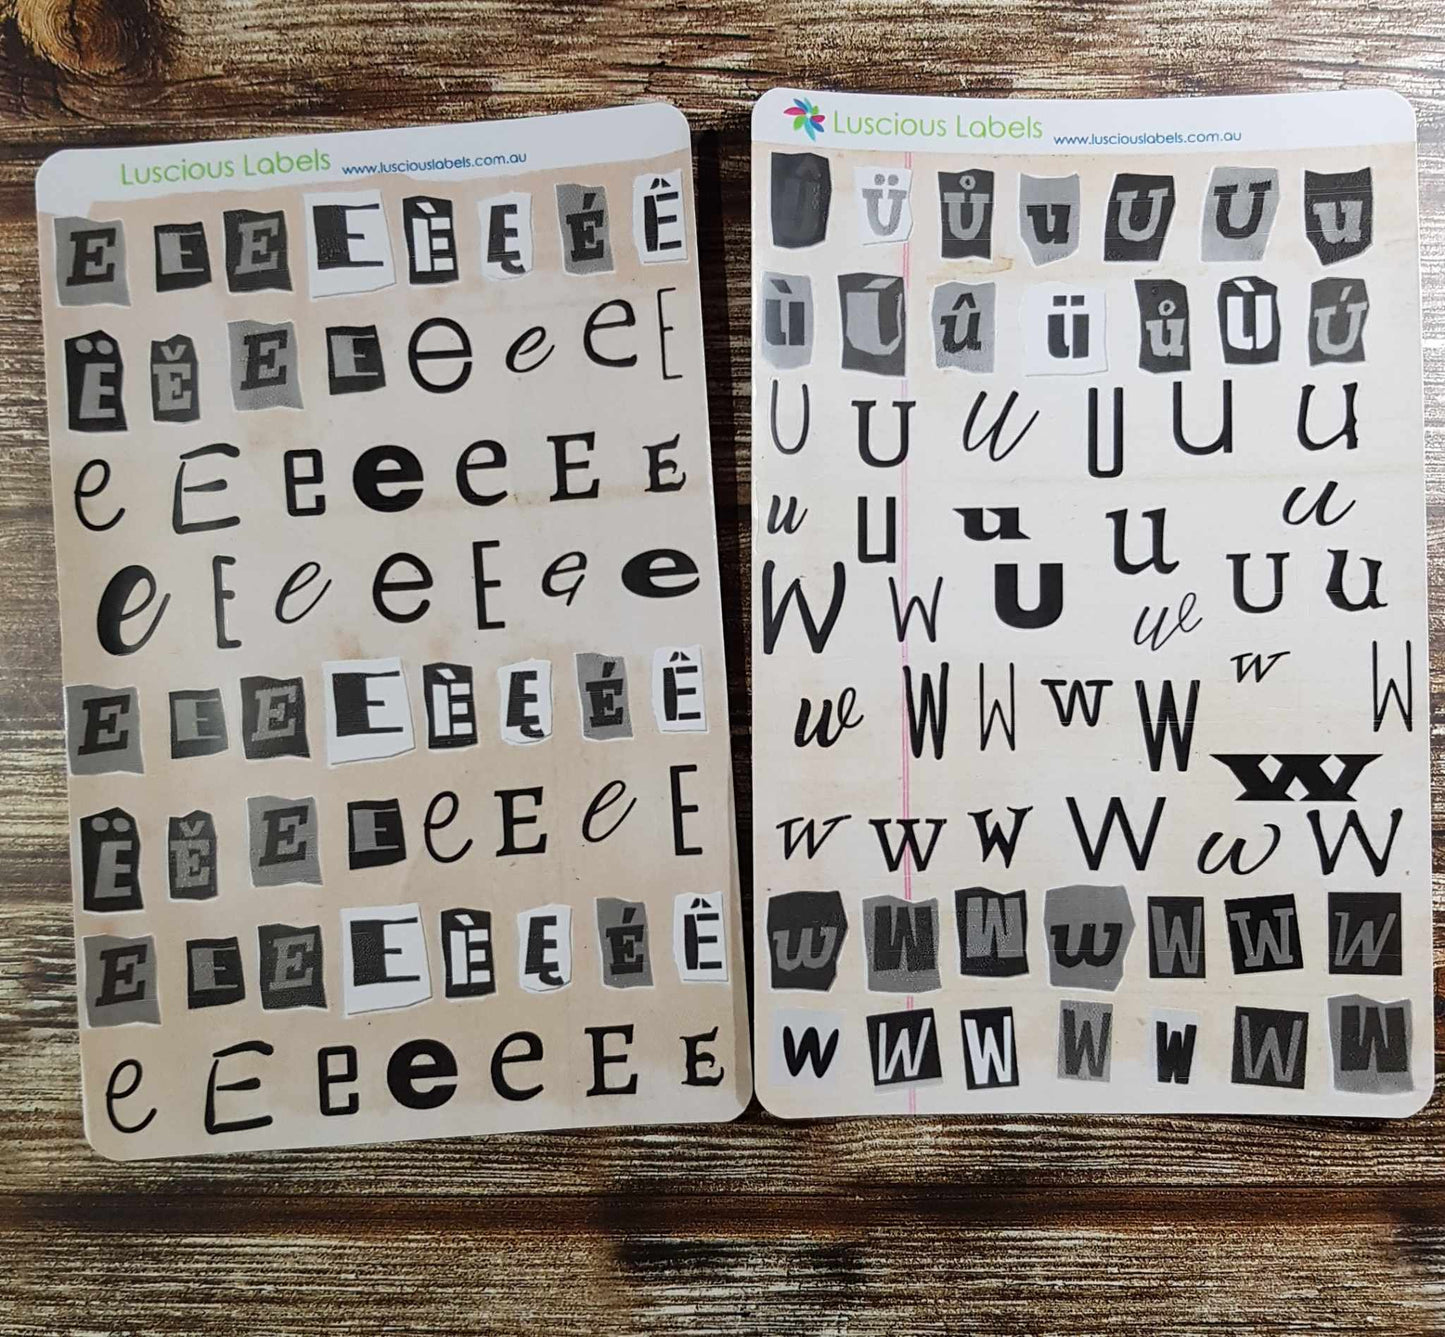 Luscious Labels www.lusciouslabels.com.au
E E E E È Ę É Ê
Ë Ě E E e e e E
e E e e e E E
e E e e E e e
E E E E È Ę É Ê
Ë Ě E E e E e E
E E E E È Ę É Ê
e E e e e E E
Luscious Labels www.lusciouslabels.com.au
Ü Ů u U U u
Ù U û ü ů Ù Ú
U U u U U u
u U u u u
W W U w U u
w W W w W w W
W
w w w W w W
w W W w W W W
w W W W W W W